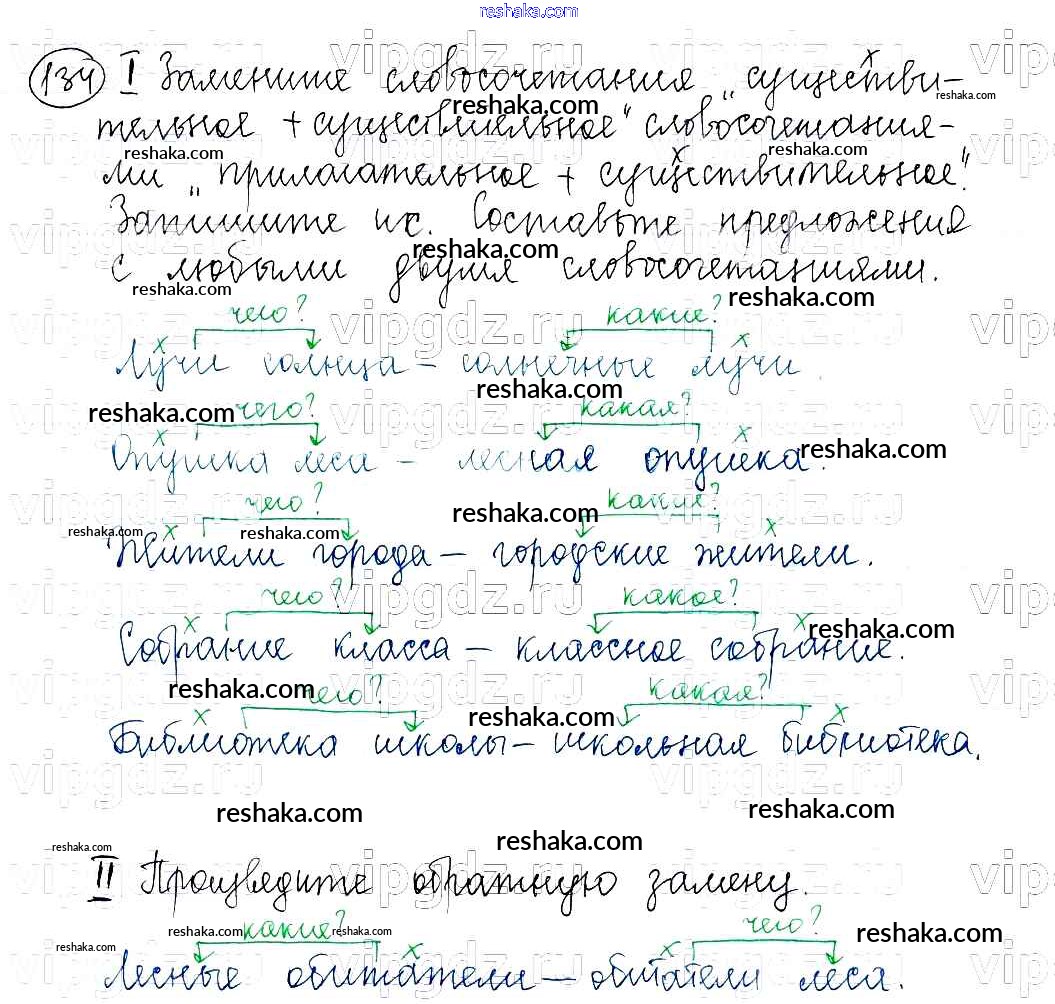 reshaka.com
134 I Замените словосочетания „существи-
тельное + существительное" словосочетания-
ми „прилагательное + существительное".
Запишите их. Составьте предложения
с любыми двумя словосочетаниями.
чего? какие?
Лучи солнца – солнечные лучи.
чего? какая?
Опушка леса – лесная опушка.
чего? какие?
Жители города – городские жители.
чего? какое?
Собрание класса – классное собрание.
чего? какая?
Библиотека школы – школьная библиотека.
II Произведите обратную замену.
какие? чего?
Лесные обитатели – обитатели леса.